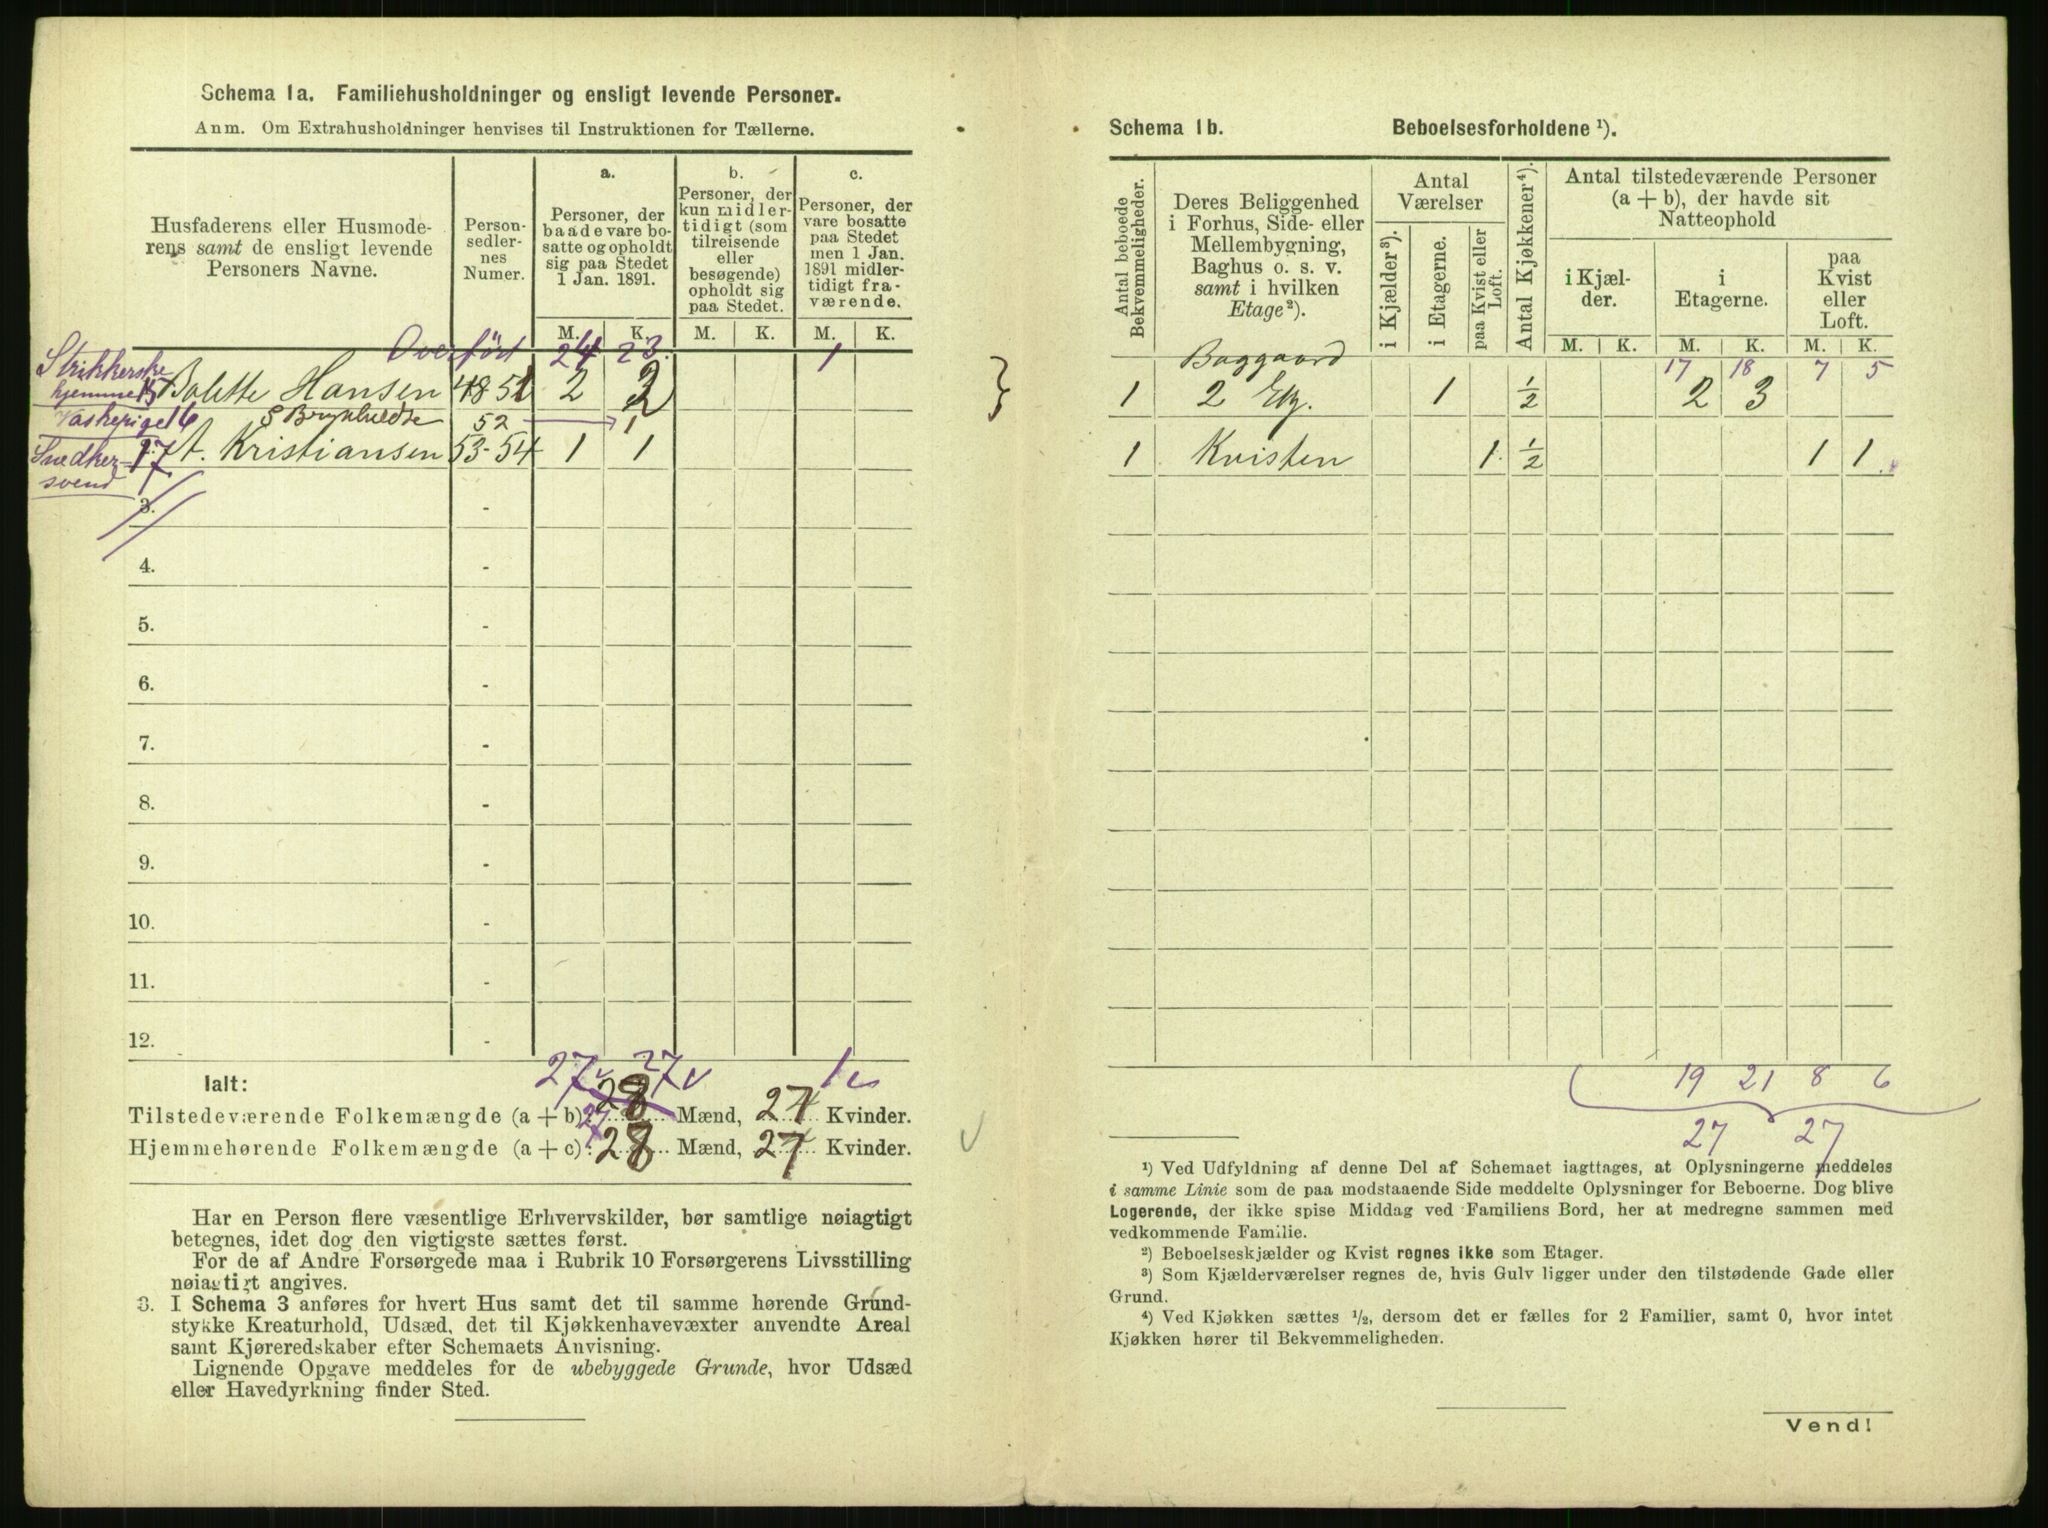 Schema 1a. Familiehusholdninger og ensligt levende Personer.
Anm. Om Extrahusholdninger henvises til Instruktionen for Tællerne.
Husfaderens eller Husmode-
rens samt de ensligt levende
Personers Navne.
Person-
sedler-
nes
Numer.
a.
Personer, der
baade vare bo-
satte og opholdt
sig paa Stedet
1 Jan. 1891.
b.
Personer, der
kun midler-
tidigt (som
tilreisende
eller
besøgende)
opholdt sig
paa Stedet.
c.
Personer, der
vare bosatte
paa Stedet
men 1 Jan.
1891 midler-
tidigt fra-
værende.
M. K. M. K. M. K.
Overført 24 23 1
Strikkerske
hjemme 15 Bolette Hansen 48 51 2 2
Vaskepige 16 S Brynhildte 52 1
Snedker- 17 A. Kristiansen 53-54 1 1
svend
3. -
4. -
5. -
6. -
7. -
8. -
9. -
10. -
11. -
12. -
27 v 27 v 1 v
Ialt:
Tilstedeværende Folkemængde (a + b): 28 27 Mænd, 27 Kvinder.
Hjemmehørende Folkemængde (a + c): 28 Mænd, 27 Kvinder.
Har en Person flere væsentlige Erhvervskilder, bør samtlige nøiagtigt
betegnes, idet dog den vigtigste sættes først.
For de af Andre Forsørgede maa i Rubrik 10 Forsørgerens Livsstilling
nøiagtigt angives.
3. I Schema 3 anføres for hvert Hus samt det til samme hørende Grund-
stykke Kreaturhold, Udsæd, det til Kjøkkenhavevæxter anvendte Areal
samt Kjøreredskaber efter Schemaets Anvisning.
Lignende Opgave meddeles for de ubebyggede Grunde, hvor Udsæd
eller Havedyrkning finder Sted.
Schema 1b. Beboelsesforholdene ¹).
Antal beboede
Bekvemmeligheder.
Deres Beliggenhed
i Forhus, Side- eller
Mellembygning,
Baghus o. s. v.
samt i hvilken
Etage²).
Antal
Værelser
i Kjælder³).
i Etagerne.
paa Kvist eller
Loft.
Antal Kjøkkener⁴).
Antal tilstedeværende Personer
(a + b), der havde sit
Natteophold
i Kjæl-
der.
i
Etagerne.
paa
Kvist
eller
Loft.
M. K. M. K. M. K.
Baggaard 17 18 7 5
1 2 Etg. 1 ½ 2 3
1 Kvisten 1 ½ 1 1
19 21 8 6
27 27
¹) Ved Udfyldning af denne Del af Schemaet iagttages, at Oplysningerne meddeles
i samme Linie som de paa modstaaende Side meddelte Oplysninger for Beboerne. Dog blive
Logerende, der ikke spise Middag ved Familiens Bord, her at medregne sammen med
vedkommende Familie.
²) Beboelseskjælder og Kvist regnes ikke som Etager.
³) Som Kjælderværelser regnes de, hvis Gulv ligger under den tilstødende Gade eller
Grund.
⁴) Ved Kjøkken sættes ½, dersom det er fælles for 2 Familier, samt 0, hvor intet
Kjøkken hører til Bekvemmeligheden.
Vend!